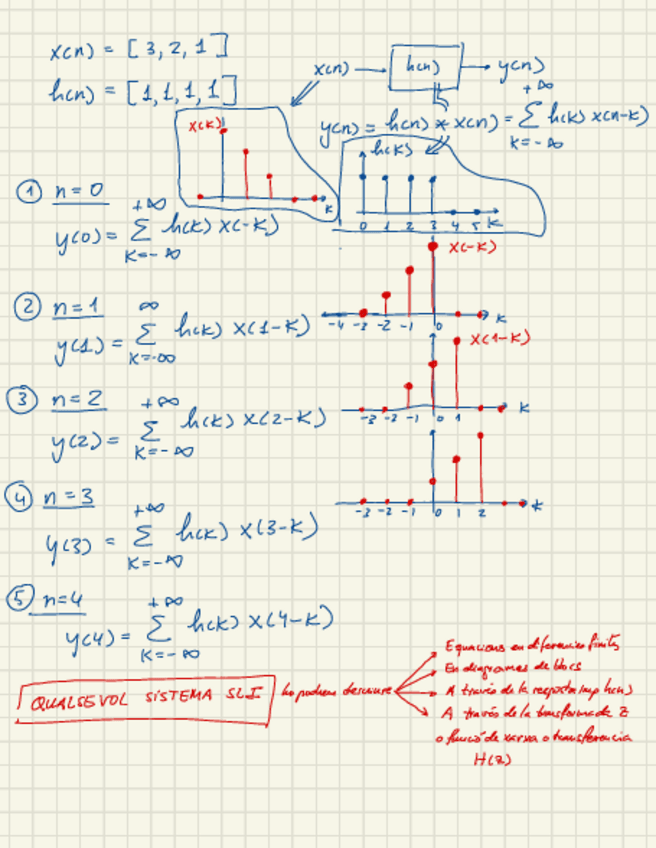 x(n) = [3, 2, 1]
h(n) = [1, 1, 1, 1]
x(n) → h(n) → y(n)
y(n) = h(n) * x(n) = +∞ Σ K=-∞ h(k) x(n-k)
x(k)
K
h(k)
0 1 2 3 4 5 K
① n=0
y(0) = +∞ Σ K=-∞ h(k) x(-k)
x(-k)
-4 -3 -2 -1 0 K
② n=1
y(1) = ∞ Σ K=-∞ h(k) x(1-k)
x(1-k)
-3 -2 -1 0 1 K
③ n=2
y(2) = +∞ Σ K=-∞ h(k) x(2-k)
-3 -2 -1 0 1 2 K
④ n=3
y(3) = +∞ Σ K=-∞ h(k) x(3-k)
⑤ n=4
y(4) = +∞ Σ K=-∞ h(k) x(4-k)
QUALSEVOL SISTEMA SLI ho podem descriure
Equacions en diferències finites
En diagrames de blocs
A través de la resposta imp h(n)
A través de la transformada Z
o funció de xarxa o transferencia
H(z)